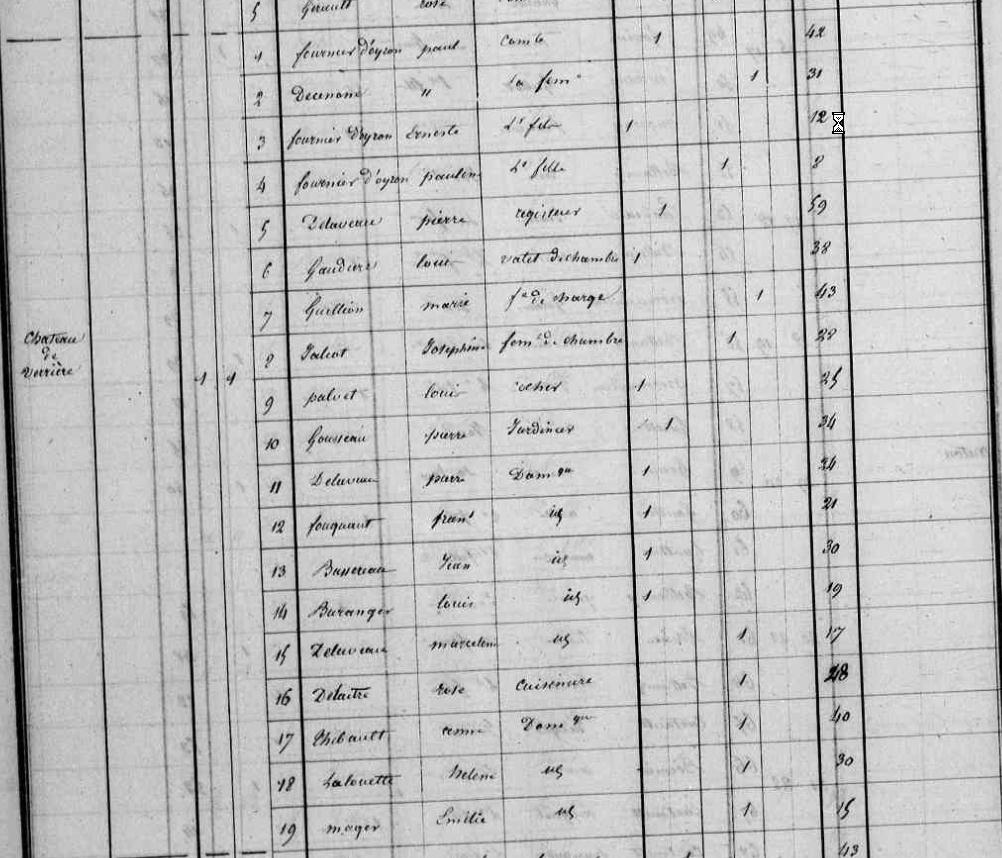 5 Girault rose
1 fournier d'oyron paul comte 1 42
2 Decenone " Sa fem^e 1 31
3 fournier d'oyron Erneste S^n fils 1 12
4 fournier d'oyron pauline S^a fille 1 8
5 Delaveau pierre regisseur 1 59
6 Gaudiere louis valet de chambre 1 38
7 Guillion marie f^e de charge 1 43
8 Jalcot Josephine fem^e de chambre 1 28
9 palvet louis cocher 1 25
10 Gousseau pierre Jardinier 1 34
11 Delaveau pierre Dom^que 1 24
12 fouquaut fran^s id 1 21
13 Bassereau Jean id 1 30
Chateau
de
Verrière
1 1
14 Baranger louis id 1 19
15 Delaveau marceline id 1 17
16 Delaitre rose Cuisiniere 1 28
17 Thibault anne Dom^que 1 40
18 Lalouette helene id 1 30
19 mayer Emilie id 1 15
43